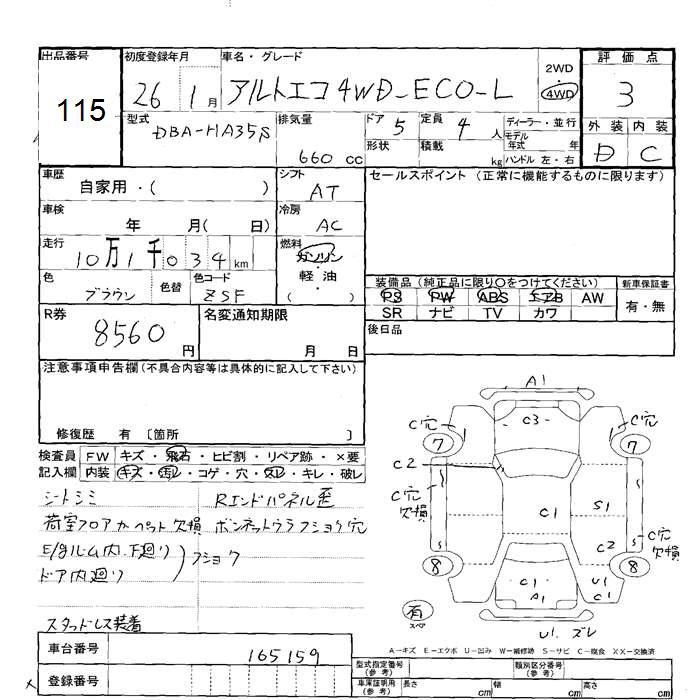 出品番号 115
初度登録年月 26 1月
車名・グレード アルトエコ4WD-ECO-L
2WD
4WD
評価点 3
型式 DBA-HA35S
排気量 660 cc
ドア 5
形状
定員 4 人
積載 kg
ディーラー・並行
モデル年式 年
ハンドル 左・右
外装 D
内装 C
車歴 自家用・( )
シフト AT
セールスポイント (正常に機能するものに限ります)
車検 年 月( 日)
冷房 AC
走行 10万1千034km
燃料 ガソリン・軽油・( )
色 ブラウン
色替
色コード ZSF
装備品 (純正品に限り○をつけてください)
PS PW ABS エアB AW
SR ナビ TV カワ
新車保証書
有・無
R券 8560円
名変通知期限 月 日
後日品
注意事項申告欄(不具合内容等は具体的に記入して下さい)
修復歴 有 〔箇所 〕
検査員記入欄
FW キズ・飛石・ヒビ割・リペア跡・×要
内装 キズ・汚レ・コゲ・穴・スレ・キレ・破レ
シートシミ
Rエンドパネル歪
荷室フロアカーペット欠損
ボンネットウラフショク穴
E/gルーム内、下廻り
ドア内廻り
フショク
スタッドレス装着
A1
C穴
C3
C穴
7
7
C2
C穴欠損
C1
S1
C穴欠損
C2
8
8
C1
A1
U1
C1
有
スペア
U1.ズレ
A-キズ E-エクボ U-凹み W-補修跡 S-サビ C-腐食 XX-交換済
車台番号 165159
登録番号
型式指定番号(参考)
類別区分番号(参考)
車庫証明用(参考) 長さ cm 幅 cm 高さ cm